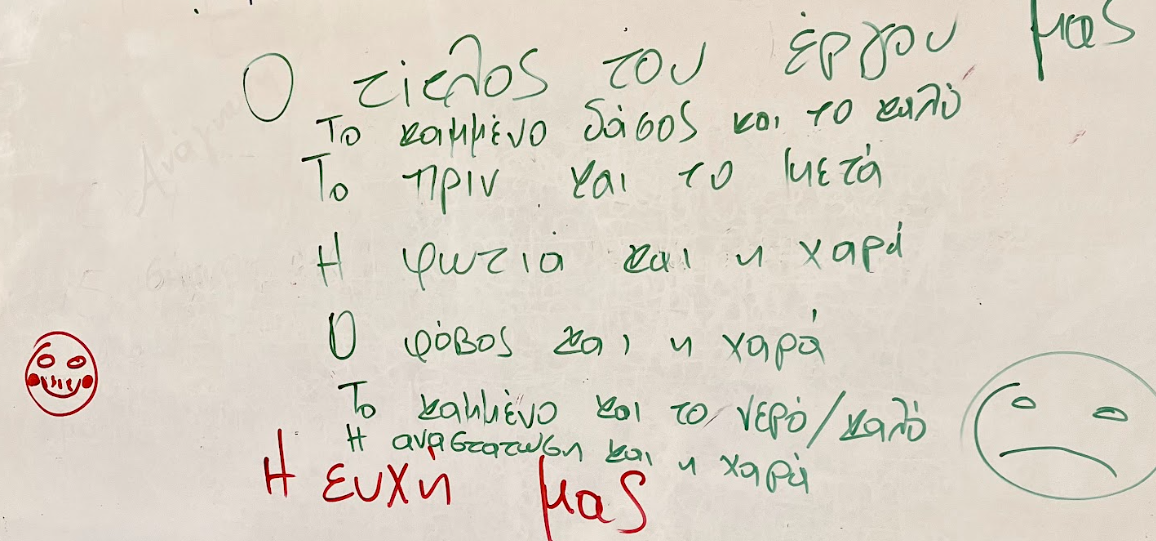 Ο τίτλος του έργου μας
Το καμμένο δάσος και το καλό
Το πριν και το μετά
Η φωτιά και η χαρά
Ο φόβος και η χαρά
Το καμμένο και το νερό/καλό
Η αναστατωση και η χαρά
Η ευχή μας